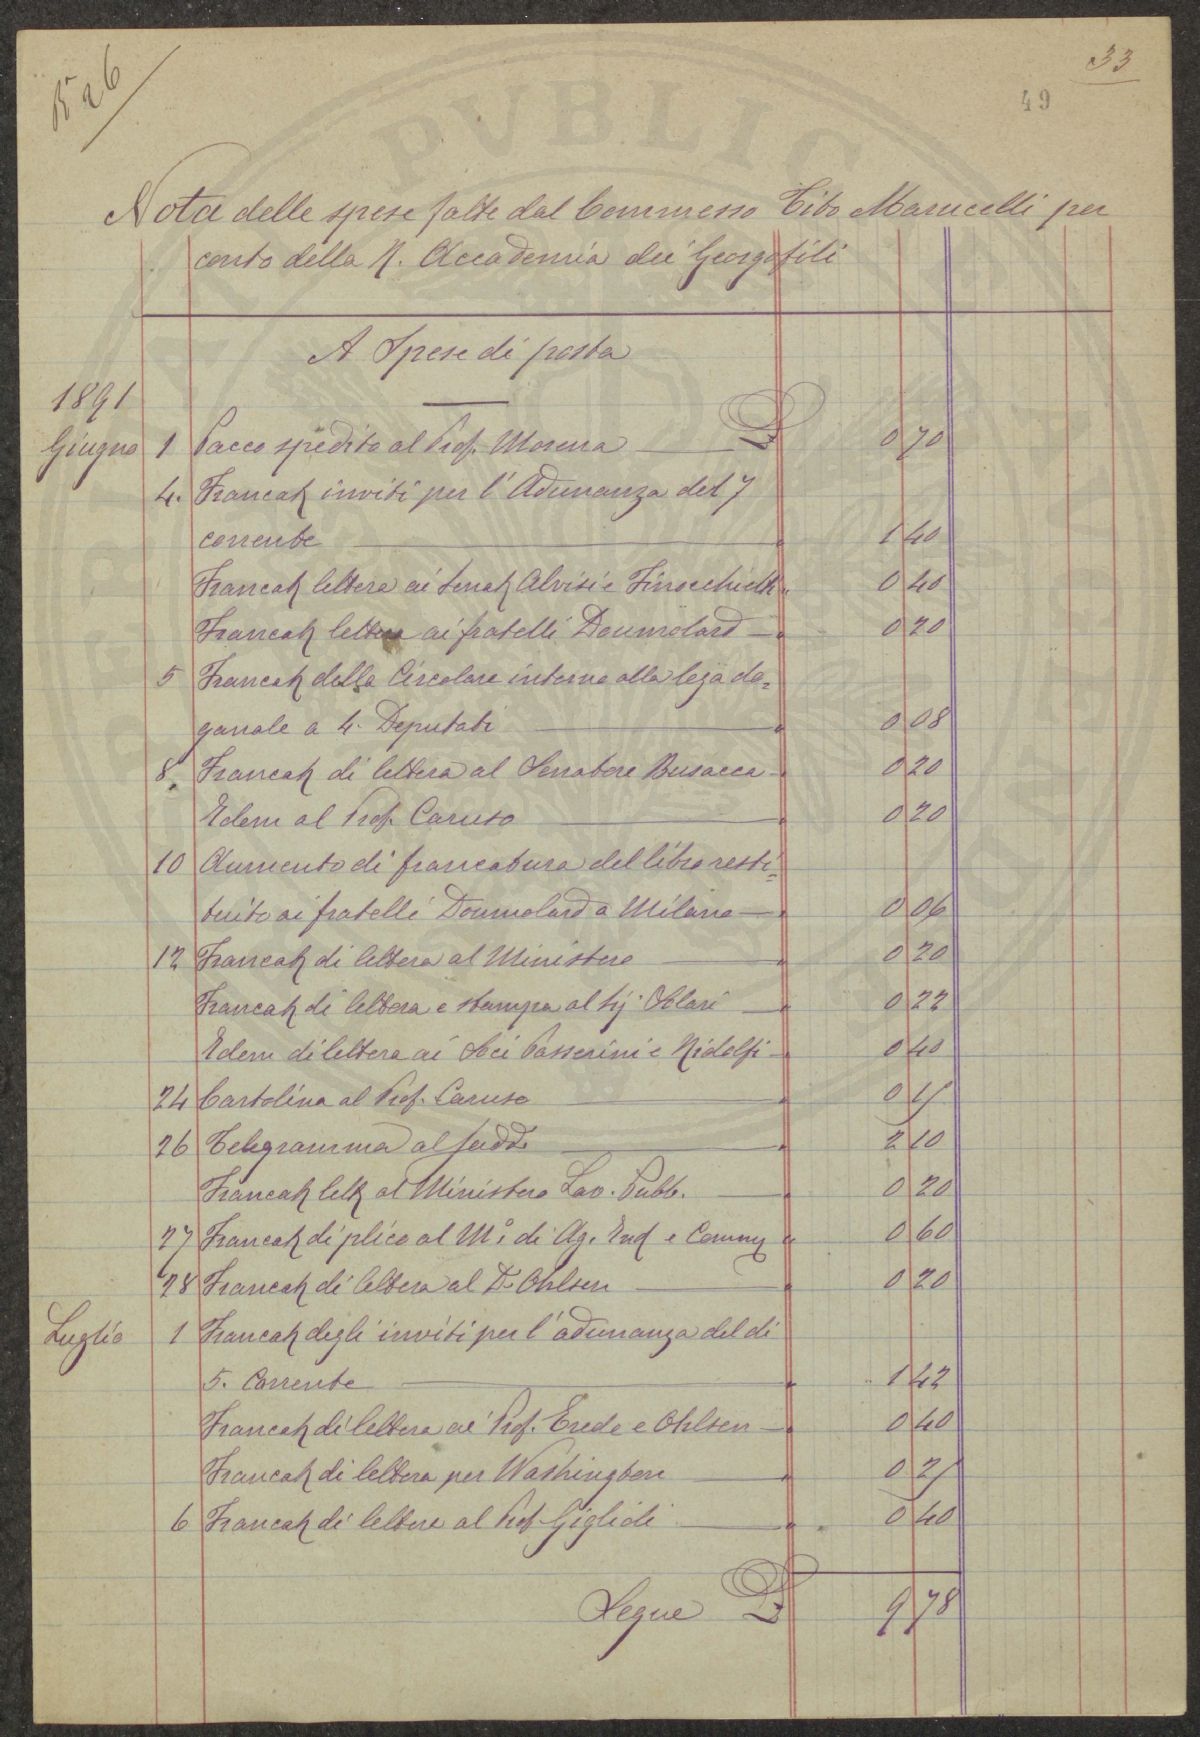 33
49
N° 26
PVBLIC
Nota delle spese fatte dal Commesso Tito Marucelli per
conto della R. Accademia dei Georgofili
A Spese di posta
1891
Giugno 1 Pacco spedito al Prof. Morena £ 0 70
4. Francat inviti per l'Adunanza del 7
corrente " 1 40
Francat lettera ai Senat Alvisi e Finocchietti " 0 40
Francat lettera ai fratelli Doumolard " 0 20
5 Francat della Circolare interno alla lega do=
ganale a 4. Deputati " 0 08
8. Francat di lettera al Senatore Busacca " 0 20
Idem al Prof. Caruso " 0 20
10 Aumento di francatura del libro resti=
tuito ai fratelli Doumolard a Milano " 0 06
12 Francat di lettera al Ministero " 0 20
Francat di lettera e stampa al Sig. 0 22
Idem di lettera ai Soci Passerini e Ridolfi " 0 40
24 Cartolina al Prof. Caruso " 0 15
26 Telegramma al " 2 10
Francat lett al Ministero Lav. Pubb. " 0 20
27 Francat di plico al M°. di Ag. Ind e Comm " 0 60
28 Francat di lettera al D. Ohlsen " 0 20
Luglio 1 Francat degli inviti per l'adunanza del di
5. Corrente " 1 42
Francat di lettera ai Prof. Erede e Ohlsen " 0 40
Francat di lettera per Washington " 0 25
6 Francat di lettere al Prof Giglioli " 0 40
Segue £ 9 78